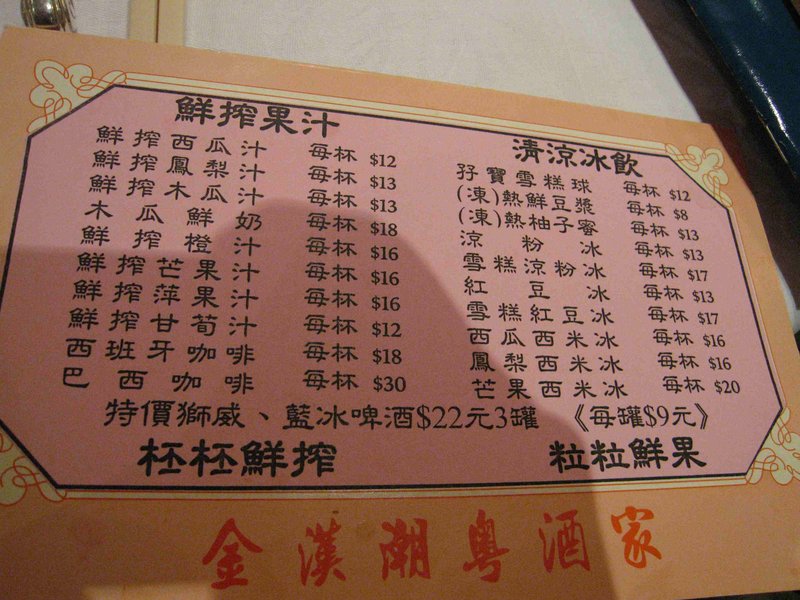 鮮搾果汁
鮮搾西瓜汁 每杯 $12
鮮搾鳳梨汁 每杯 $13
鮮搾木瓜汁 每杯 $13
木瓜鮮奶 每杯 $18
鮮搾橙汁 每杯 $16
鮮搾芒果汁 每杯 $16
鮮搾萍果汁 每杯 $16
鮮搾甘荀汁 每杯 $12
西班牙咖啡 每杯 $18
巴西咖啡 每杯 $30
清涼冰飲
孖寶雪糕球 每杯 $12
(凍)熱鮮豆漿 每杯 $8
(凍)熱柚子蜜 每杯 $13
涼粉冰 每杯 $13
雪糕涼粉冰 每杯 $17
紅豆冰 每杯 $13
雪糕紅豆冰 每杯 $17
西瓜西米冰 每杯 $16
鳳梨西米冰 每杯 $16
芒果西米冰 每杯 $20
特價獅威、藍冰啤酒$22元3罐 《每罐$9元》
杯杯鮮搾 粒粒鮮果
金漢潮粵酒家